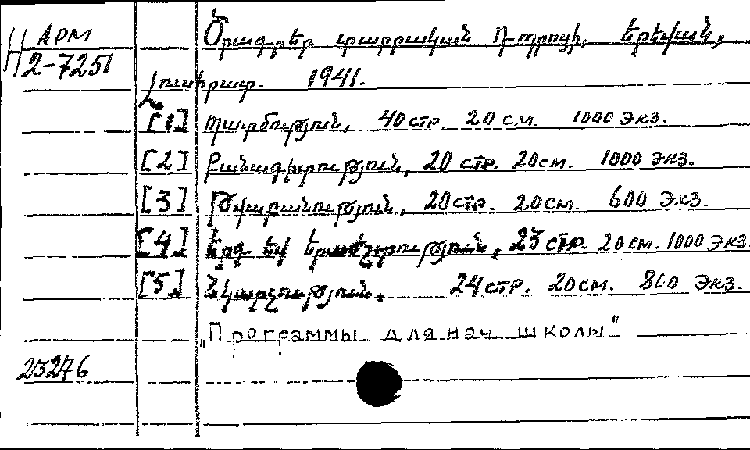 АРМ
Н 2-7251
Ծրագրեր տարրական դպրոցի. Երեվան,
լուսհրատ. 1941.
[1] Պատմություն, 40 стр. 20 см. 1000 экз.
[2] Բնագիտություն, 20 стр. 20 см. 1000 экз.
[3] Թվաբանություն, 20 стр. 20 см. 600 экз.
[4] Երգ եվ երաժշտություն, 23 стр. 20 см. 1000 экз.
[5] Նկարչություն. 24 стр. 20 см. 800 экз.
„Программы для нач школы"
23276